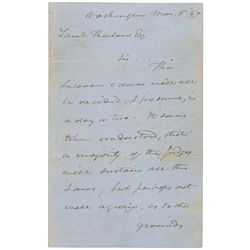 Washington Mar. 5/47
Esq
Sir The
License cases will all
be decided, I presume, in
a day or two. It seems
to be understood, that
a majority of the judges
will sustain all the
Laws, but perhaps not
well agreeing, as to the
grounds